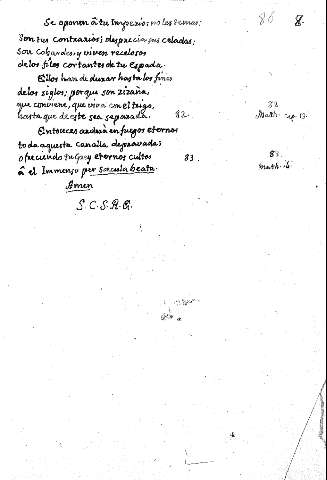 Se oponen â tu Imperio; no los temas;
Son tus contrarios; desprecia sus celadas;
son cobardes, y viven recelosos
de los filos cortantes de tu Espada.
Ellos han de durar hasta los fines
de los siglos; porque son zizaña,
que conviene, que viva con el trigo,
hasta que de este sea separada. 82.
Entonces arderà en fuegos eternos
toda aquesta canalla depravada;
ofreciendo tu Grey eternos cultos 83.
â el Immenso per sæcula beata.
Amen
S. C. S. R. E.
8.
82
Math. cap. 13.
83.
Math. ib.